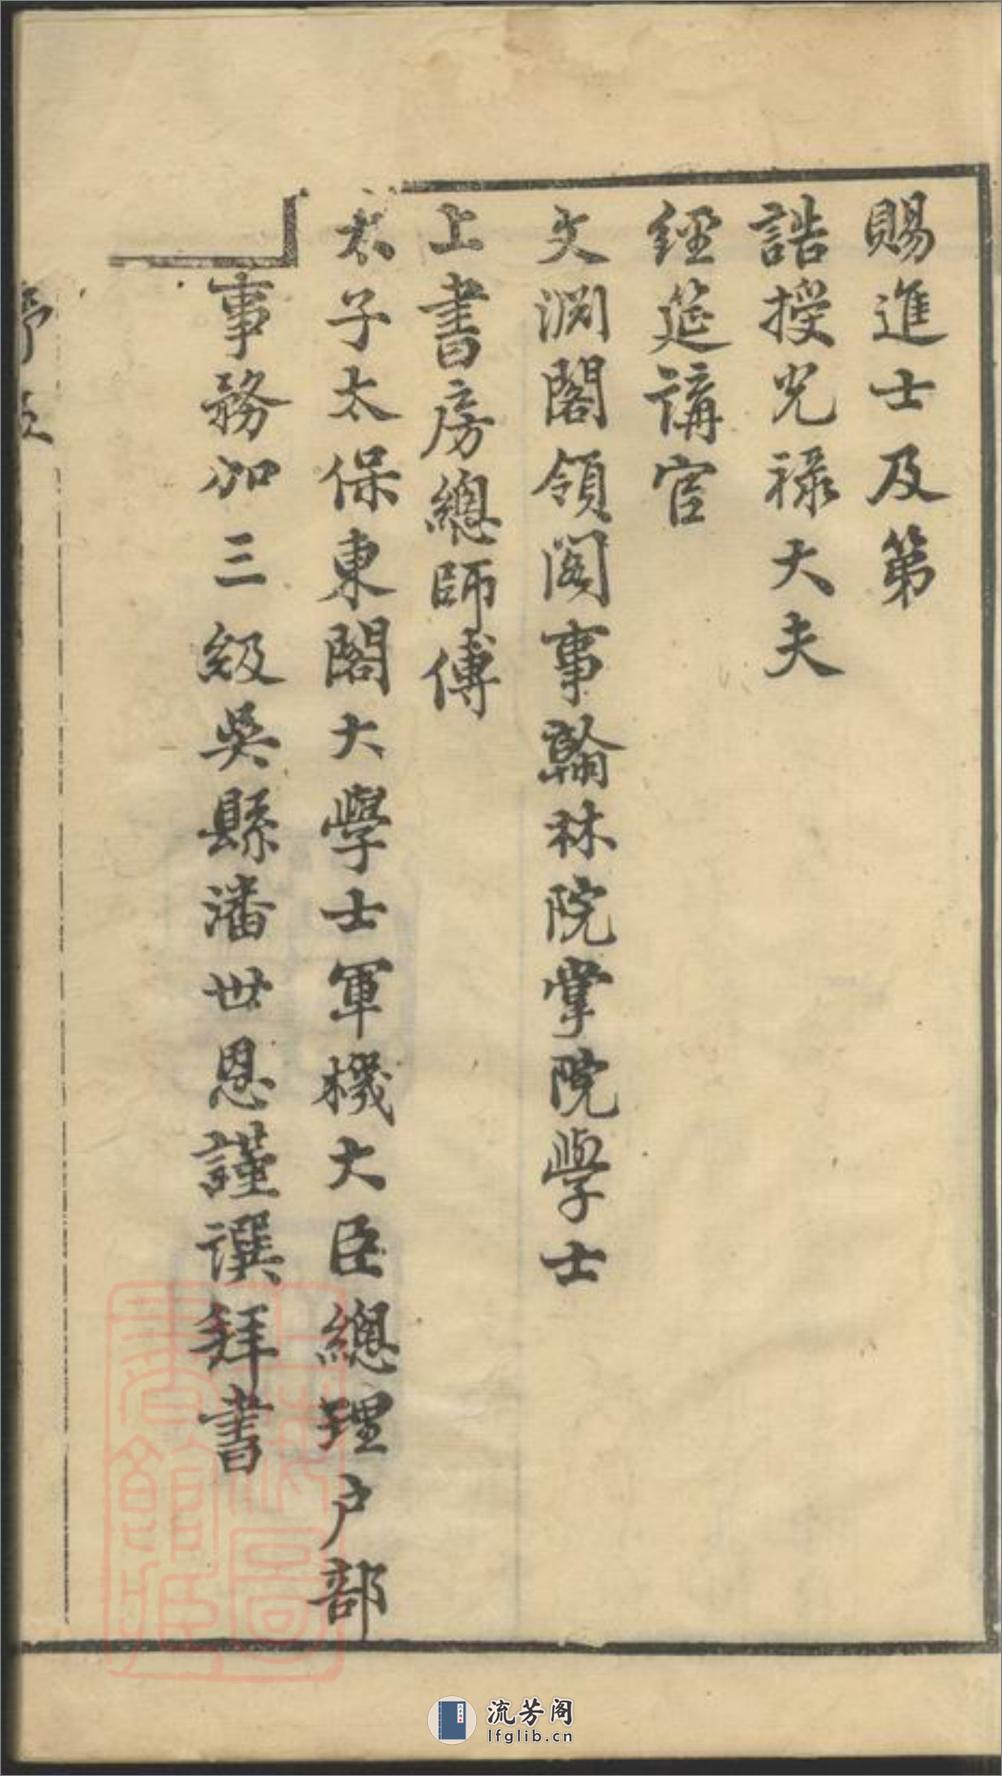 賜進士及第
誥授光祿大夫
經筵講官
文淵閣領閣事翰林院掌院學士
上書房總師傅
太子太保東閣大學士軍機大臣總理户部
事務加三級吳縣潘世恩謹譔拜書
流芳阁
lfglib.cn